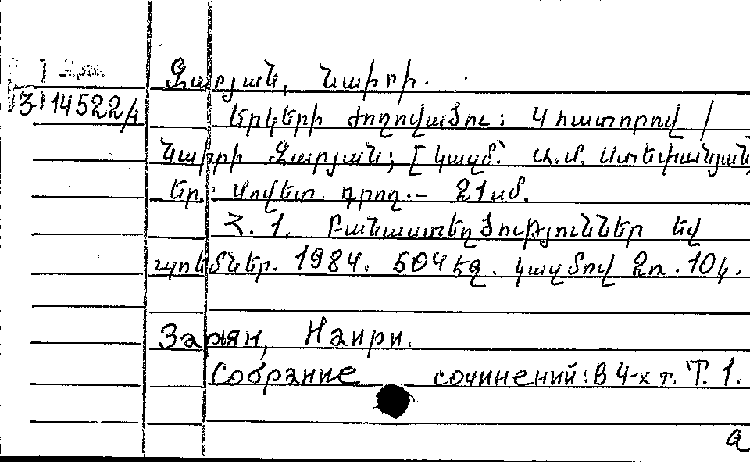 Զարյան, Նաիրի.
З 14522/4
Երկերի ժողովածու: 4 հատորով /
Նաիրի Զարյան; [Կազմ՝ Ա.Մ. Ստեփանյան,
Եր.: Սովետ. գրող.— 21սմ.
Հ. 1. Բանաստեղծություններ եվ
պոեմներ. 1984. 504 էջ. կազմով 2ռ. 10կ.
Зарян, Наири.
Собрание сочинений: В 4-х т. Т. 1.
а